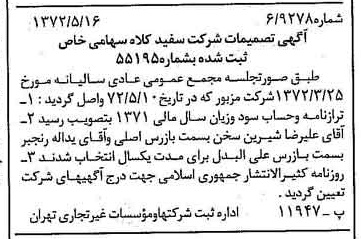 شماره۶/۹۲۷۸ ۱۳۷۲/۵/۱۶
آگهی تصمیمات شرکت سفید کلاه سهامی خاص
ثبت شده بشماره۵۵۱۹۵
طبق صورتجلسه مجمع عمومی عادی سالیانه مورخ
۱۳۷۲/۳/۲۵شرکت مزبور که در تاریخ ۷۲/۵/۱۰ واصل گردید : ۱ـ
ترازنامه وحساب سود وزیان سال مالی ۱۳۷۱ بتصویب رسید ۲ـ
آقای علیرضا شیرین سخن بسمت بازرس اصلی وآقای یداله رنجبر
بسمت بازرس علی البدل برای مدت یکسال انتخاب شدند ۳ـ
روزنامه کثیرالانتشار جمهوری اسلامی جهت درج آگهیهای شرکت
تعیین گردید .
پ ـ ۱۱۹۴۷ اداره ثبت شرکتهاومؤسسات غیرتجاری تهران